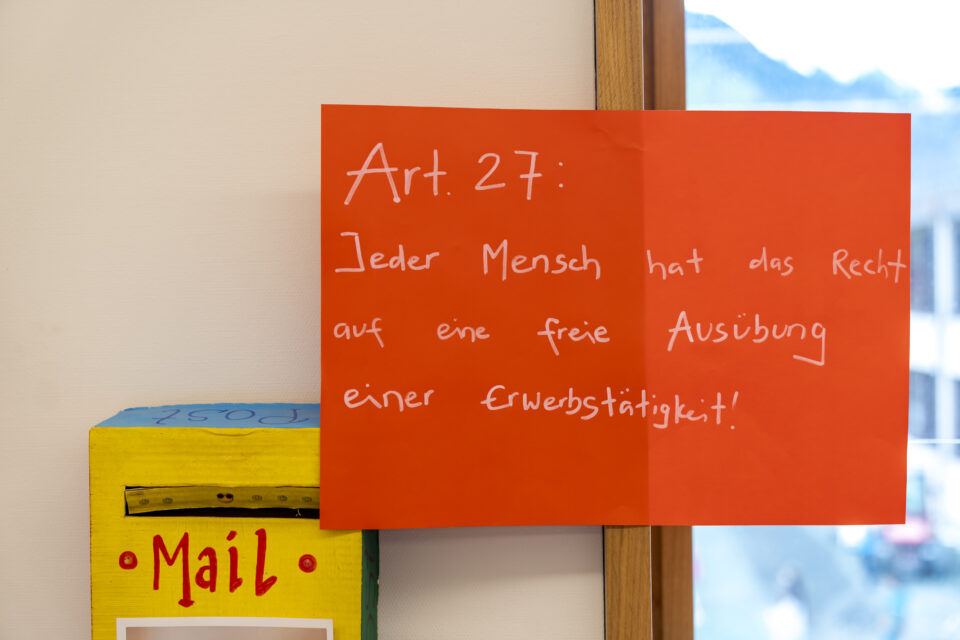 Art. 27:
Jeder Mensch hat das Recht
auf eine freie Ausübung
einer Erwerbstätigkeit!
Post
Mail